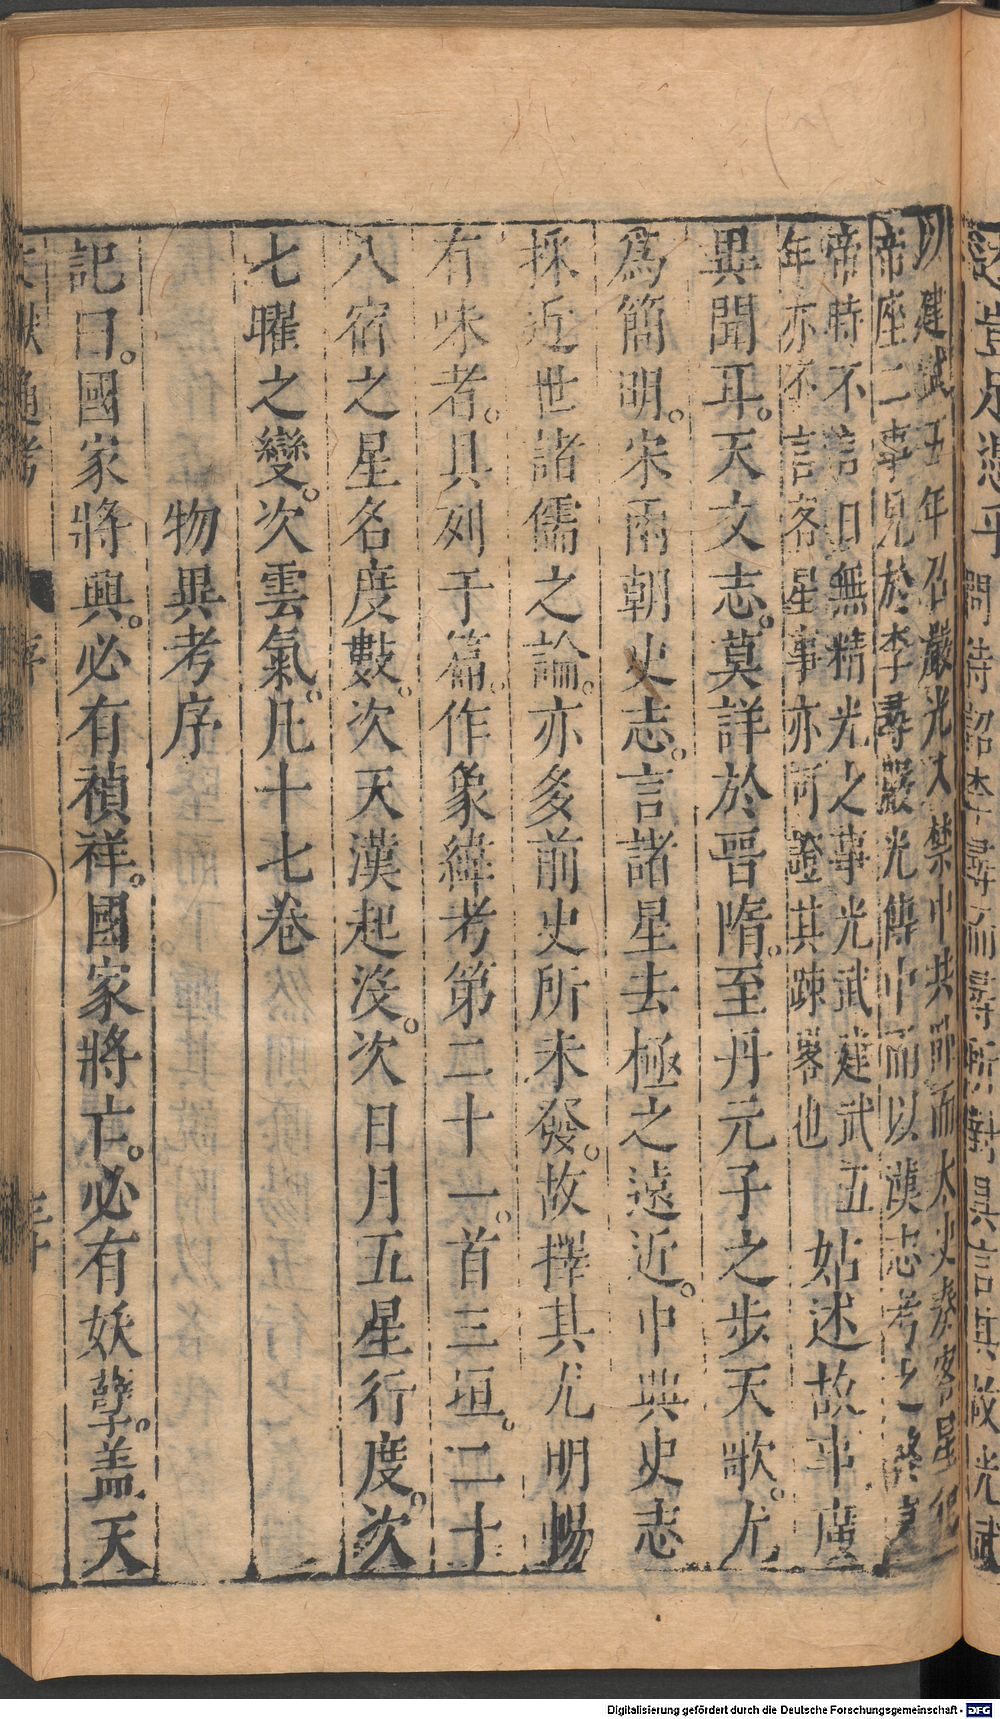 以建武五年召嚴光入禁中共臥而太史奏客星犯
帝座二事見於李尋嚴光傳中而以漢志考之終哀
帝時不言日無精光之事光武建武五
年亦不言客星事亦可證其疎畧也
姑述故事廣
異聞耳。天文志。莫詳於晉隋。至丹元子之步天歌。尤
爲簡明。宋兩朝史志。言諸星去極之遠近。中興史志
採近世諸儒之論。亦多前史所未發。故擇其尤明暢
有味者。具列于篇。作象緯考第二十一。首三垣。二十
八宿之星名度數。次天漢起沒。次日月五星行度。次
七曜之變。次雲氣。凡十七卷
物異考序
記曰。國家將興。必有禎祥。國家將亡。必有妖孽。盖天
文獻通考
序
三十
Digitalisierung gefördert durch die Deutsche Forschungsgemeinschaft - DFG